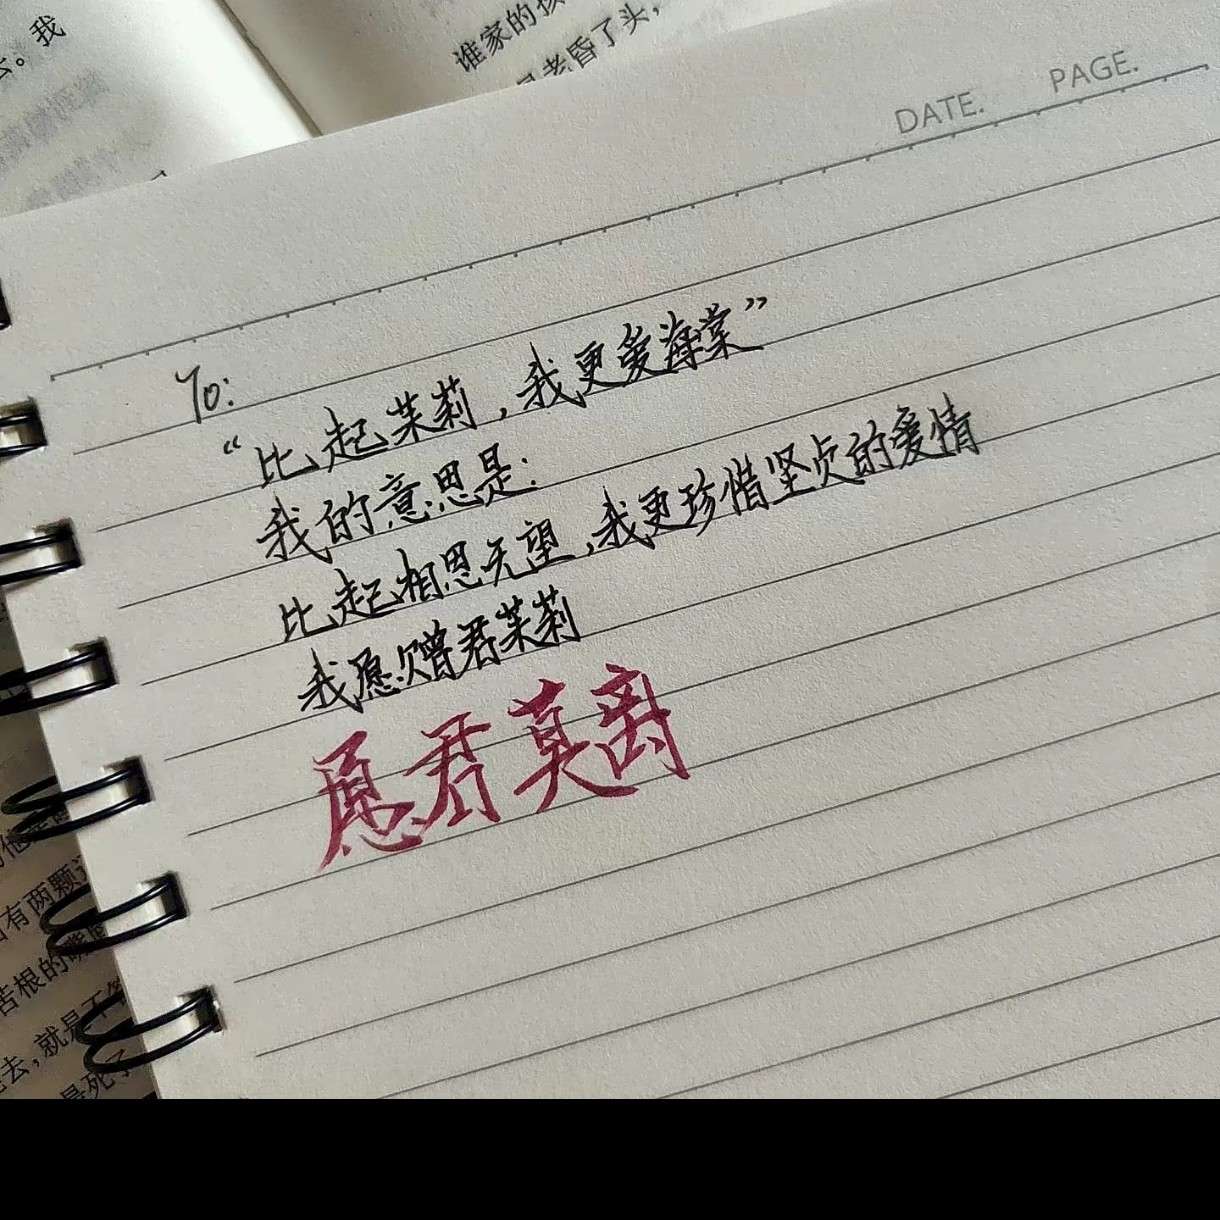 去。我
谁家的孩
老昏了头，
DATE. PAGE.
To:
“比起茉莉，我更爱海棠”
我的意思是：
比起相思无望，我更珍惜坚贞的爱情
我愿赠君茉莉
愿君莫离
有两颗
苦根的嘴
去，就是不
是死了